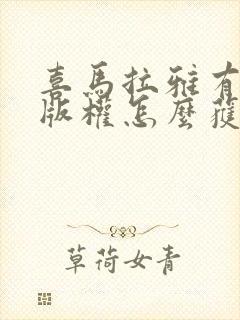 喜馬拉雅有
版權怎麼獲
草荷女青